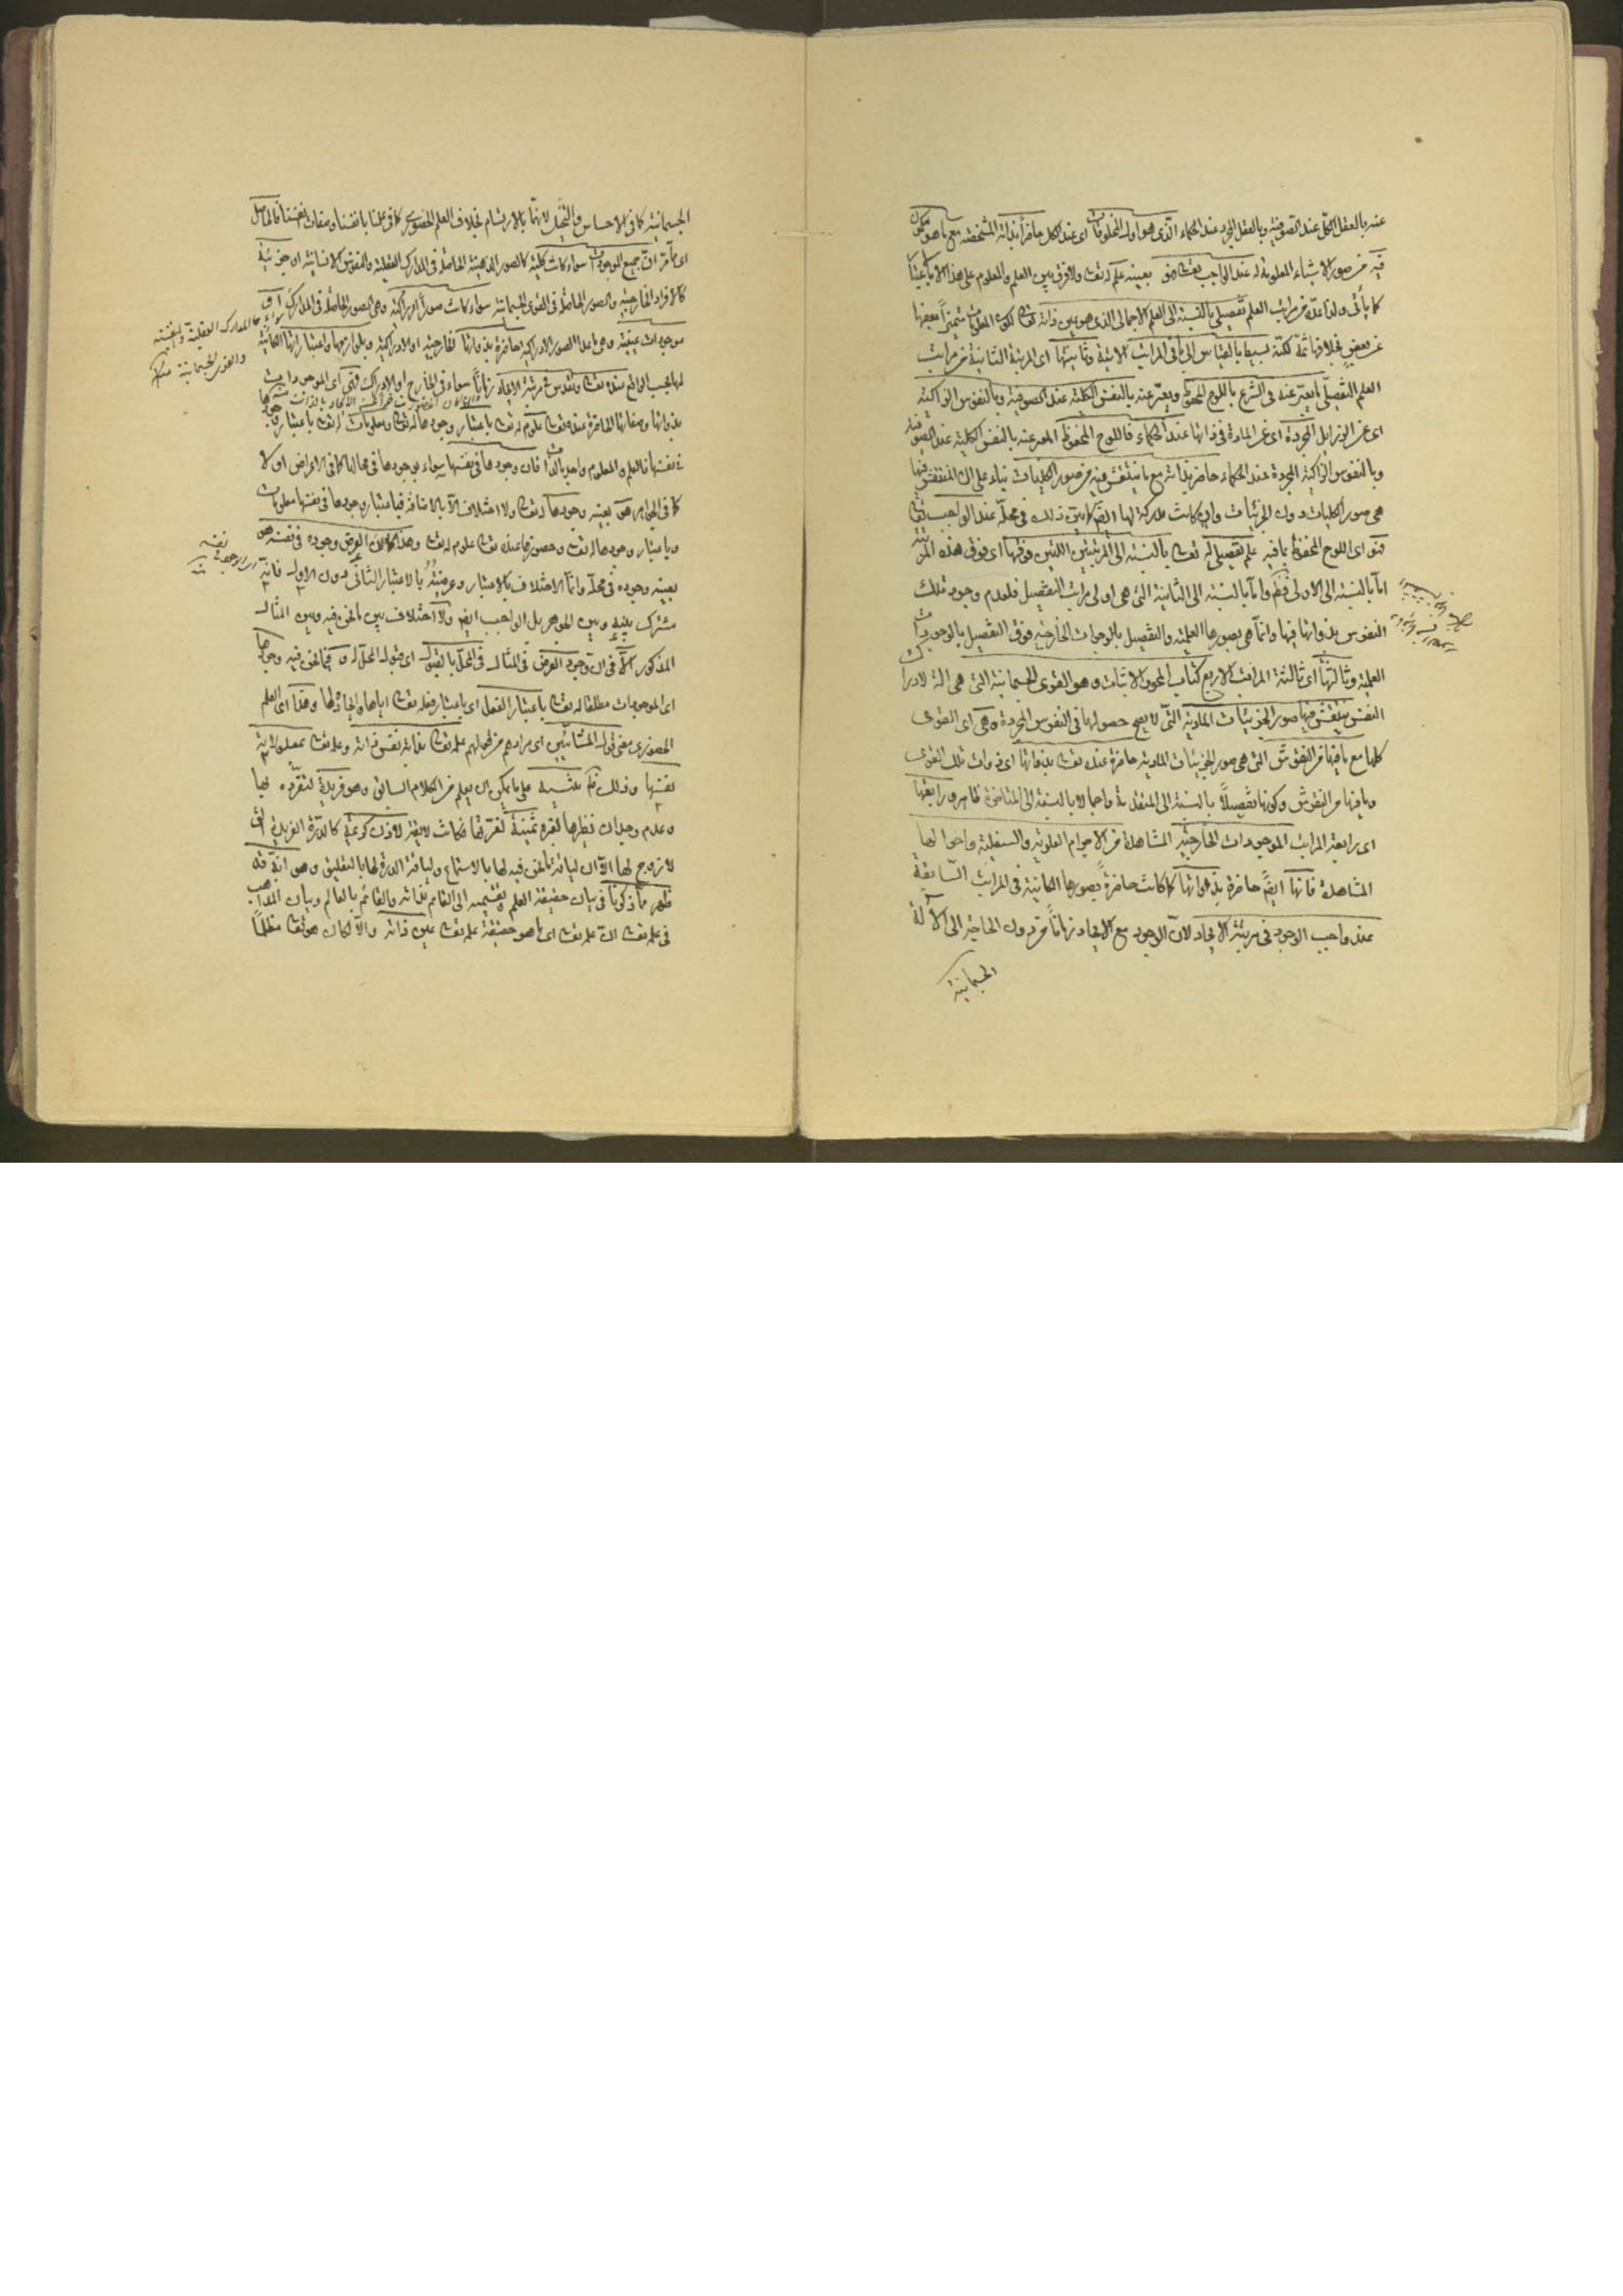 عنه بالعقل الكل عند الصوفية وبالعقل المجرد عند الحكماء الذى هو اول المخلوقات اى عند الكل حاضر بذاته المشخصة مع ما هو مكنون
فيه من صور الاشياء المعلومة له عند الواجب تعالى فهو بعينه علم له تعالى ولا فرق بين العلم والمعلوم على هذا الا بالاعتبار
كما يأتى وانما عده من مراتب العلم تفصيلى بالنسبة الى العلم الاجمالى الذى هو عين ذاته تعالى لكون المعلومات متميزا بعضها
عن بعض بخلافها ثمة لكنه بسيط بالقياس الى باقى المراتب الاتية وثانيتها اى المرتبة الثانية من مراتب
العلم التفصيلى ما يعبر عنه فى الشرع باللوح المحفوظ ويعبر عنه بالنفس الكلية عند الصوفية وبالنفوس الزاكية
اى عن الرزايل المجردة اى عن المادة فى ذاتها عند الحكماء فاللوح المحفوظ المعبر عنه بالنفس الكلية عند الصوفية
وبالنفوس الزاكية المجردة عند الحكماء حاضر بذاته مع ما ينتقش فيه من صور الكليات بناء على ان المنتقش فيها
هى صور الكليات دون الجزئيات وان كانت مدركة لها ايضا كما بين ذلك فى محله عند الواجب تعالى
فهو اى اللوح المحفوظ بما فيه علم تفصيلى له تعالى بالنسبة الى المرتبتين اللتين فوقها اى فوق هذه المرتبة
اما بالنسبة الى الاولى فظم واما بالنسبة الى الثانية التى هى اولى مراتب التفصيل فلعدم وجود تلك
النفوس بذواتها فيها وانما هى بصورها العلمية والتفصيل بالموجودات الخارجية فوق التفصيل بالوجودات
العلمية وثالثتها اى ثالثة المراتب الاربع كتاب المحو والاثبات وهو القوى الجسمانية التى هى الة لادراك
النفس ينتقش فيها صور الجزئيات المادية التى لا يصح حصولها فى النفوس المجردة وهى اى القوى
كلها مع ما فيها من النقوش التى هى صور الجزئيات المادية حاضرة عنده تعالى بذواتها اى ذوات تلك القوى
وما فيها من النقوش وكونها تفصيلا بالنسبة الى المتقدمة واجمالا بالنسبة الى المتاخرة ظاهر ورابعتها
اى رابعة المراتب الموجودات الخارجية المشاهدة من الاجرام العلوية والسفلية واحوالها
المشاهدة فانها ايضا حاضرة بذواتها كما كانت حاضرة بصورها الكائنة فى المراتب السابقة
عند واجب الوجود فى مرتبة الايجاد لان الوجود مع الايجاد زمانا من دون الحاجة الى الالة
الجسمانية
الجسمانية كما فى الاحساس والتخيل لانهما بالارتسام بخلاف العلم الحضورى كما فى علمنا بانفسنا وصفات انفسنا فالحاصل
اى مما مر ان جميع الموجودات سواء كانت كلية كالصور الذهنية الحاصلة فى المدارك العقلية والنفوس الانسانية او جزئية
كالافراد الخارجية والصور الحاصلة فى القوى الجسمانية سواء كانت صورا ادراكية وهى الصور الحاصلة فى المدارك او
موجودات عينية وهى ما عدا الصور الادراكية حاضرة بذواتها الخارجية او الادراكية وبلوازمها واعتباراتها الكائنة
لها بحسب الواقع عنده تعالى وتقدس فى مرتبة الايجاد زمانا سواء فى الخارج او الادراك فهى اى الموجودات
بذواتها وصفاتها الحاضرة عنده تعالى علوم له تعالى باعتبار وجودها له تعالى ومعلومات له تعالى باعتبار وجودها
فى نفسها فالعلم والمعلوم واحد بالذات فان وجودها فى نفسها سواء بوجودها فى محالها كما فى الاعراض او لا
كما فى الجواهر هو بعينه وجودها له تعالى ولا اختلاف الا بالاضافة فباعتبار وجودها فى نفسها معلومات
وباعتبار وجودها له تعالى وحضورها عنده تعالى علوم له تعالى وهذا كما ان العرض وجوده فى نفسه هو
بعينه وجوده فى محله وانما الاختلاف بالاعتبار وعرضيته بالاعتبار الثانى دون الاول فانه
مشترك بينه وبين الجوهر بل الواجب ايضا ولا اختلاف بين ما نحن فيه وبين المثال
المذكور الا فى ان وجود العرض فى المثال فى المحل بالقبول اى قبول المحل له وفيما نحن فيه وجودها
اى الموجودات مطلقا له تعالى باعتبار الفعل اى باعتبار فعله تعالى اياها وايجاده لها وهذا اى العلم
الحضورى معنى قول المشائيين اى مرادهم من قولهم علمه تعالى بذاته نفس ذاته وعلمه تعالى بمعلولاته
نفسها وذلك تنبيه على ما يمكن ان يعلم من الكلام السابق وهو فريدة لتفرده بها
وعدم وجدان نظيرها لغيره ثمينة لعزتها فكانت لايقة لاذن كريمة كالدرة الفريدة التى
لا زوج لها الا ان لياقة ما نحن فيه لها بالاستماع ولياقة الدرة لها بالتعليق وهو انه قد
ظهر مما ذكرنا فى بيان حقيقة العلم وتقسيمه الى القائم بذاته والقائم بالعالم وبيان المذاهب
فى علمه تعالى ان علمه تعالى اى ما هو حقيقة علمه تعالى عين ذاته والا لكان هو تعالى مظلما